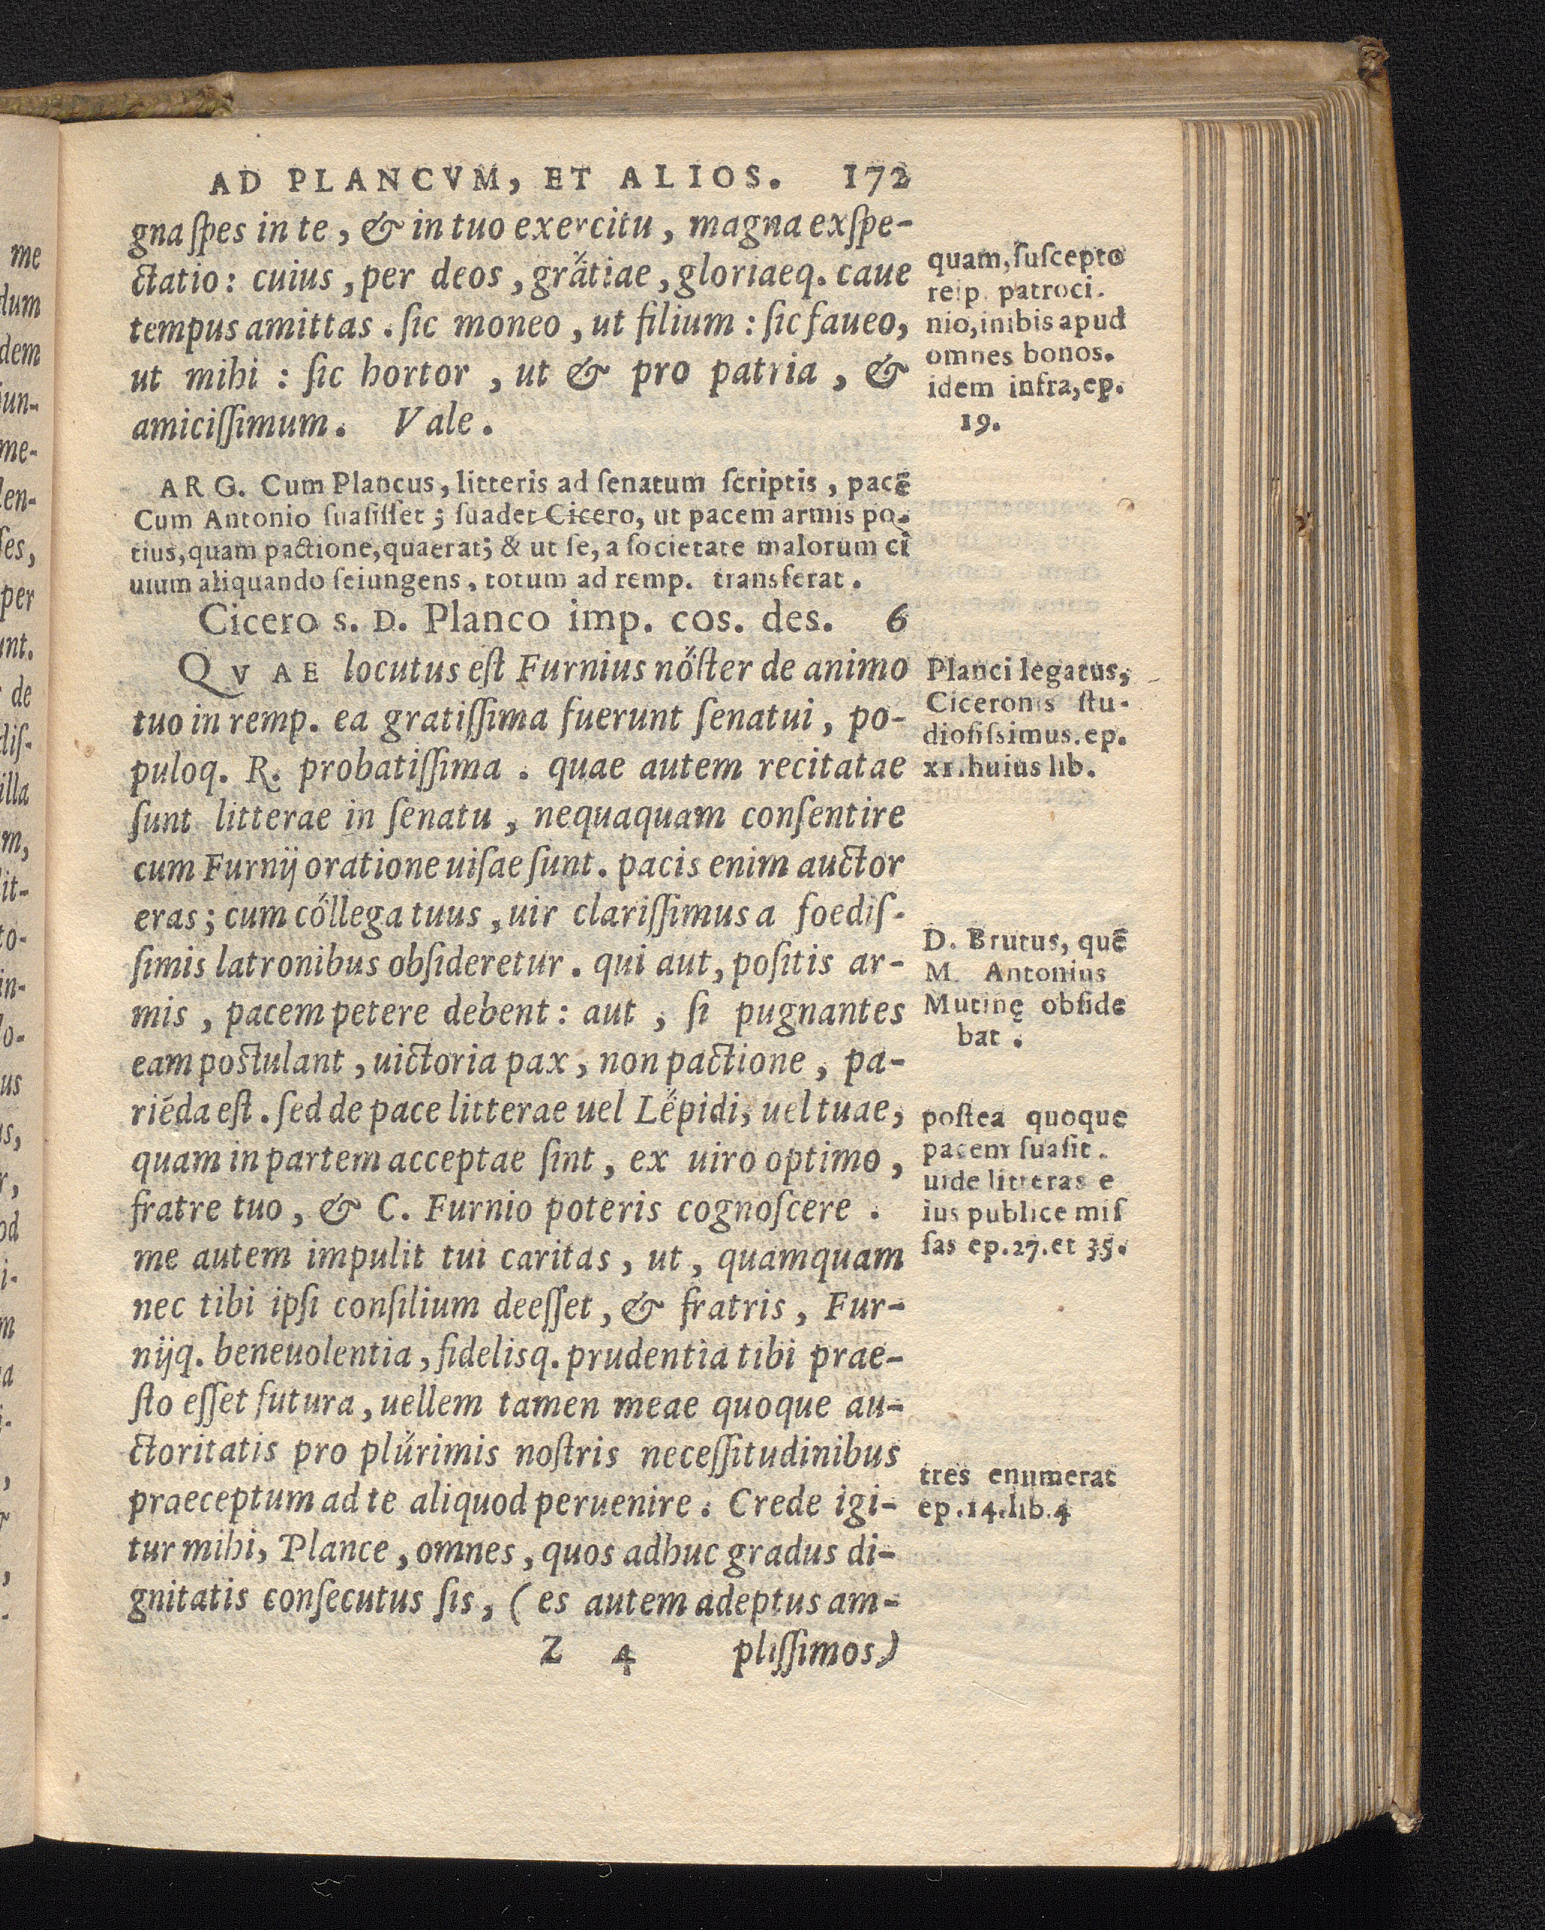 AD PLANCVM, ET ALIOS. 172
gna ſpes in te, & in tuo exercitu, magna exſpe-
ctatio: cuius, per deos, gratiae, gloriaeq. caue
tempus amittas. ſic moneo, ut filium: ſic faueo,
ut mihi: ſic hortor, ut & pro patria, &
amiciſſimum. Vale.
quam, ſuſcepto
reip. patroci.
nio, inibis apud
omnes bonos.
idem infra, ep.
19.
ARG. Cum Plancus, litteris ad ſenatum ſcriptis, pacē
Cum Antonio ſuaſiſſet; ſuadet Cicero, ut pacem armis po-
tius, quam pactione, quaerat; & ut ſe, a ſocietate malorum ci
uium aliquando ſeiungens, totum ad remp. transferat.
Cicero s. D. Planco imp. cos. des. 6
QVAE locutus eſt Furnius nőſter de animo
tuo in remp. ea gratiſſima fuerunt ſenatui, po-
puloq. R. probatiſſima. quae autem recitatae
ſunt litterae in ſenatu, nequaquam conſentire
cum Furnij oratione uiſae ſunt. pacis enim auctor
eras; cum cőllega tuus, uir clariſſimus a foediſ-
ſimis latronibus obſideretur. qui aut, poſitis ar-
mis, pacem petere debent: aut, ſi pugnantes
eam poſtulant, uictoria pax, non pactione, pa-
riēda eſt. ſed de pace litterae uel Lepidi, uel tuae,
quam in partem acceptae ſint, ex uiro optimo,
fratre tuo, & C. Furnio poteris cognoſcere.
me autem impulit tui caritas, ut, quamquam
nec tibi ipſi conſilium deeſſet, & fratris, Fur-
nijq. beneuolentia, fidelisq. prudentia tibi prae-
ſto eſſet futura, uellem tamen meae quoque au-
ctoritatis pro plűrimis noſtris neceſſitudinibus
praeceptum ad te aliquod peruenire. Crede igi-
tur mihi, Plance, omnes, quos adhuc gradus di-
gnitatis conſecutus ſis, (es autem adeptus am-
Z 4 pliſſimos)
Planci legatus,
Ciceronis ſtu-
dioſiſsimus. ep.
xI. huius lib.
D. Brutus, quē
M. Antonius
Mutinę obſide
bat.
poſtea quoque
pacem ſuaſit.
uide litteras e
ius publice miſ
ſas ep. 27. et 35.
tres enumerat
ep. 14. lib. 4
me
dum
dem
un-
me-
len-
ſes,
per
unt.
de
diſ-
illa
m,
it-
to-
in-
lo-
us
us,
r,
od
i-
m